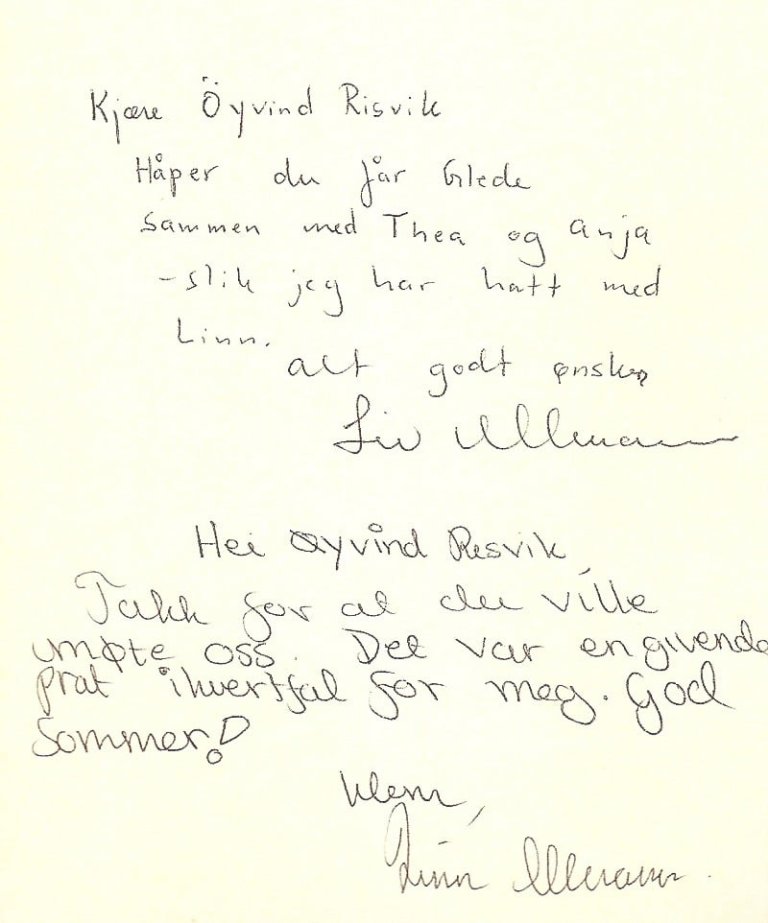 Kjære Öyvind Risvik
Håper du får Glede
sammen med Thea og Anja
- slik jeg har hatt med
Linn.
alt godt ønskes
Liv Ullmann
Hei Øyvind Risvik,
Takk for at du ville
møte oss. Det var en givende
prat ihvertfal for meg. God
Sommer!
Klem,
Linn Ullmann.